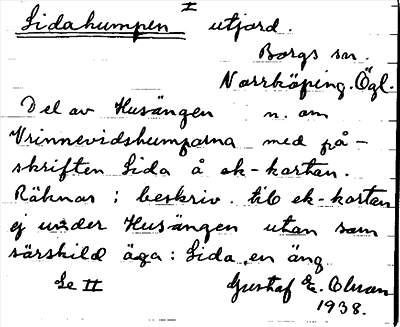 Sidahumpen I utjord.
Borgs sn.
Norrköping. Ögl.
Del av Husängen n. om
Vrinnevidshumparna med på-
skriften Sida å ek-kartan.
Räknas i beskriv. till ek-kartan
ej under Husängen utan som
särskild äga: Sida, en äng
Se II Gustaf E. Olsson
1938.